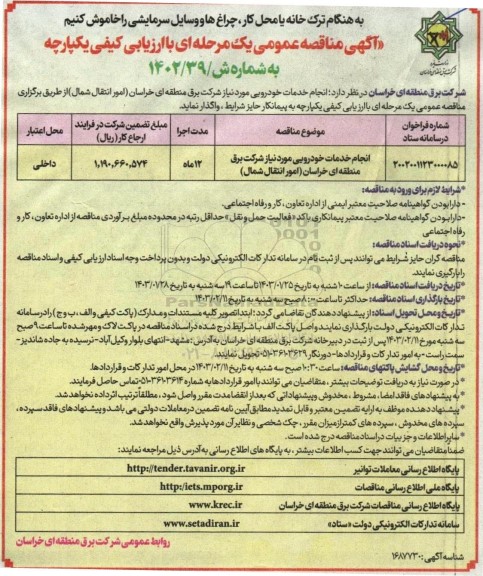 به هنگام ترک خانه یا محل کار، چراغ ها و وسایل سرمایشی را خاموش کنیم
«آگهی مناقصه عمومی یک مرحله ای با ارزیابی کیفی یکپارچه
به شماره ش/۱۴۰۲/۳۹
شرکت برق منطقه ای خراسان در نظر دارد: انجام خدمات خودرویی مورد نیاز شرکت برق منطقه ای خراسان (امور انتقال شمال) از طریق برگزاری
مناقصه عمومی یک مرحله ای با ارزیابی کیفی یکپارچه به پیمانکار حایز شرایط، واگذار نماید.
شماره فراخوان در سامانه ستاد
موضوع مناقصه
مدت اجرا
مبلغ تضمین شرکت در فرایند ارجاع کار (ریال)
محل اعتبار
۲۰۰۲۰۰۱۱۲۳۰۰۰۰۸۵
انجام خدمات خودرویی مورد نیاز شرکت برق منطقه ای خراسان (امور انتقال شمال)
۱۲ ماه
۱,۱۹۰,۶۶۰,۵۷۴
داخلی
*شرایط لازم برای ورود به مناقصه:
- دارا بودن گواهینامه صلاحیت معتبر ایمنی از اداره تعاون، کار و رفاه اجتماعی.
- دارا بودن گواهینامه صلاحیت معتبر پیمانکاری با کد «فعالیت حمل و نقل» حداقل رتبه در محدوده مبلغ برآوردی مناقصه از اداره تعاون، کار و
رفاه اجتماعی
*نحوه دریافت اسناد مناقصه:
مناقصه گران حایز شرایط می توانند پس از ثبت نام در سامانه تدارکات الکترونیکی دولت و بدون پرداخت وجه اسناد ارزیابی کیفی و اسناد مناقصه
را بارگیری نمایند.
*تاریخ دریافت اسناد مناقصه: از ساعت ۱۰ شنبه به تاریخ ۱۴۰۳/۰۱/۲۵ تا ساعت ۱۹ سه شنبه به تاریخ ۱۴۰۳/۰۱/۲۸
*تاریخ بارگذاری اسناد مناقصه: حداکثر تا ساعت ۸:۰۰ صبح سه شنبه به تاریخ ۱۴۰۳/۰۲/۱۱
*تاریخ و محل تحویل اسناد: از پیشنهاد دهندگان تقاضا می گردد: ابتدا تصویر کلیه مستندات و مدارک (پاکت کیفی و الف، ب و ج) را در سامانه
تدارکات الکترونیکی دولت بارگذاری نمایند و اصل پاکت الف با شرایط درج شده در اسناد مناقصه در پاکت لاک و مهر شده تا ساعت ۹ صبح
سه شنبه مورخ ۱۴۰۳/۰۲/۱۱ پس از ثبت در دبیرخانه شرکت برق منطقه ای خراسان به آدرس: مشهد- انتهای بلوار وکیل آباد- نرسیده به جاده شاندیز-
سمت راست - به امور تدارکات و قراردادها- دورنگار ۰۵۱-۳۶۱۰۳۶۲۹ تحویل نمایند.
*تاریخ و محل گشایش پاکتهای مناقصه: ساعت ۱۰:۳۰ صبح سه شنبه به تاریخ ۱۴۰۳/۰۲/۱۱ در محل امور تدارکات و قراردادها.
* در صورت نیاز به دریافت توضیحات بیشتر، متقاضیان می توانند با امور قراردادها به شماره ۰۵۱-۳۶۱۰۳۶۱۴ تماس حاصل فرمایند.
* به پیشنهادهای فاقد امضا، مشروط، مخدوش و پیشنهاداتی که بعد از انقضا مدت مقرر واصل شود، مطلقا ترتیب اثر داده نخواهد شد.
* پیشنهاد دهنده موظف به ارایه تضمین معتبر و قابل تمدید مطابق آیین نامه تضمین در معاملات دولتی می باشد و پیشنهادهای فاقد سپرده،
سپرده های مخدوش، سپرده های کمتر از میزان مقرر، چک شخصی و نظایر آن مورد پذیرش واقع نخواهد شد.
*سایر اطلاعات و جزییات در اسناد مناقصه درج شده است.
ضمنا متقاضیان می توانند جهت کسب اطلاعات بیشتر، به پایگاه های اطلاع رسانی به آدرس ذیل مراجعه نمایند:
پایگاه اطلاع رسانی معاملات توانیر http://tender.tavanir.org.ir
پایگاه ملی اطلاع رسانی مناقصات http:/iets.mporg.ir
پایگاه اطلاع رسانی مناقصات شرکت برق منطقه ای خراسان www.krec.ir
سامانه تدارکات الکترونیکی دولت «ستاد» www.setadiran.ir
روابط عمومی شرکت برق منطقه ای خراسان
شناسه آگهی: ۱۶۸۷۷۳۰